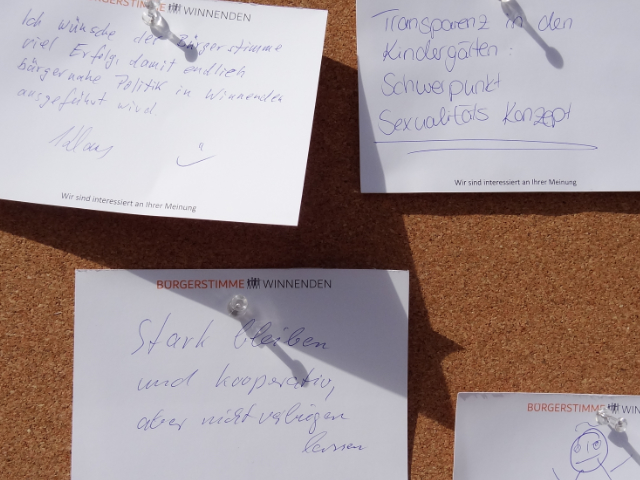 BÜRGERSTIMME WINNENDEN
Ich wünsche der Bürgerstimme
viel Erfolg, damit endlich
bürgernahe Politik in Winnenden
ausgeführt wird.
Klaus
Wir sind interessiert an Ihrer Meinung
Transparenz in den
Kindergärten:
Schwerpunkt
Sexualitäts Konzept
Wir sind interessiert an Ihrer Meinung
BÜRGERSTIMME WINNENDEN
Stark bleiben
und kooperativ,
aber nicht verbiegen
lassen
BÜRGERSTIMME WINNEN